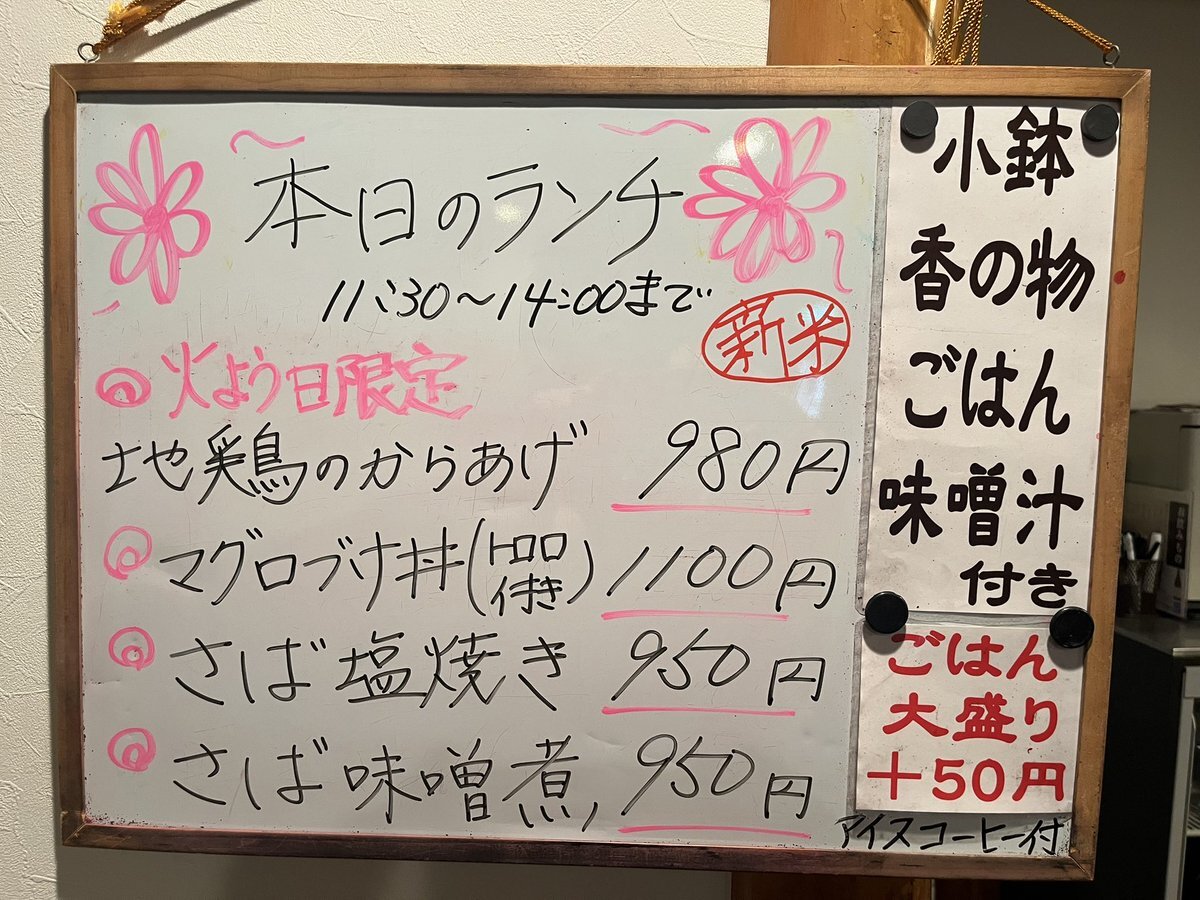 本日のランチ
11:30〜14:00まで
新米
火よう日限定
地鶏のからあげ 980円
マグロブツ丼(トロロ付き) 1100円
さば塩焼き 950円
さば味噌煮 950円
小鉢
香の物
ごはん
味噌汁
付き
ごはん
大盛り
+50円
アイスコーヒー付